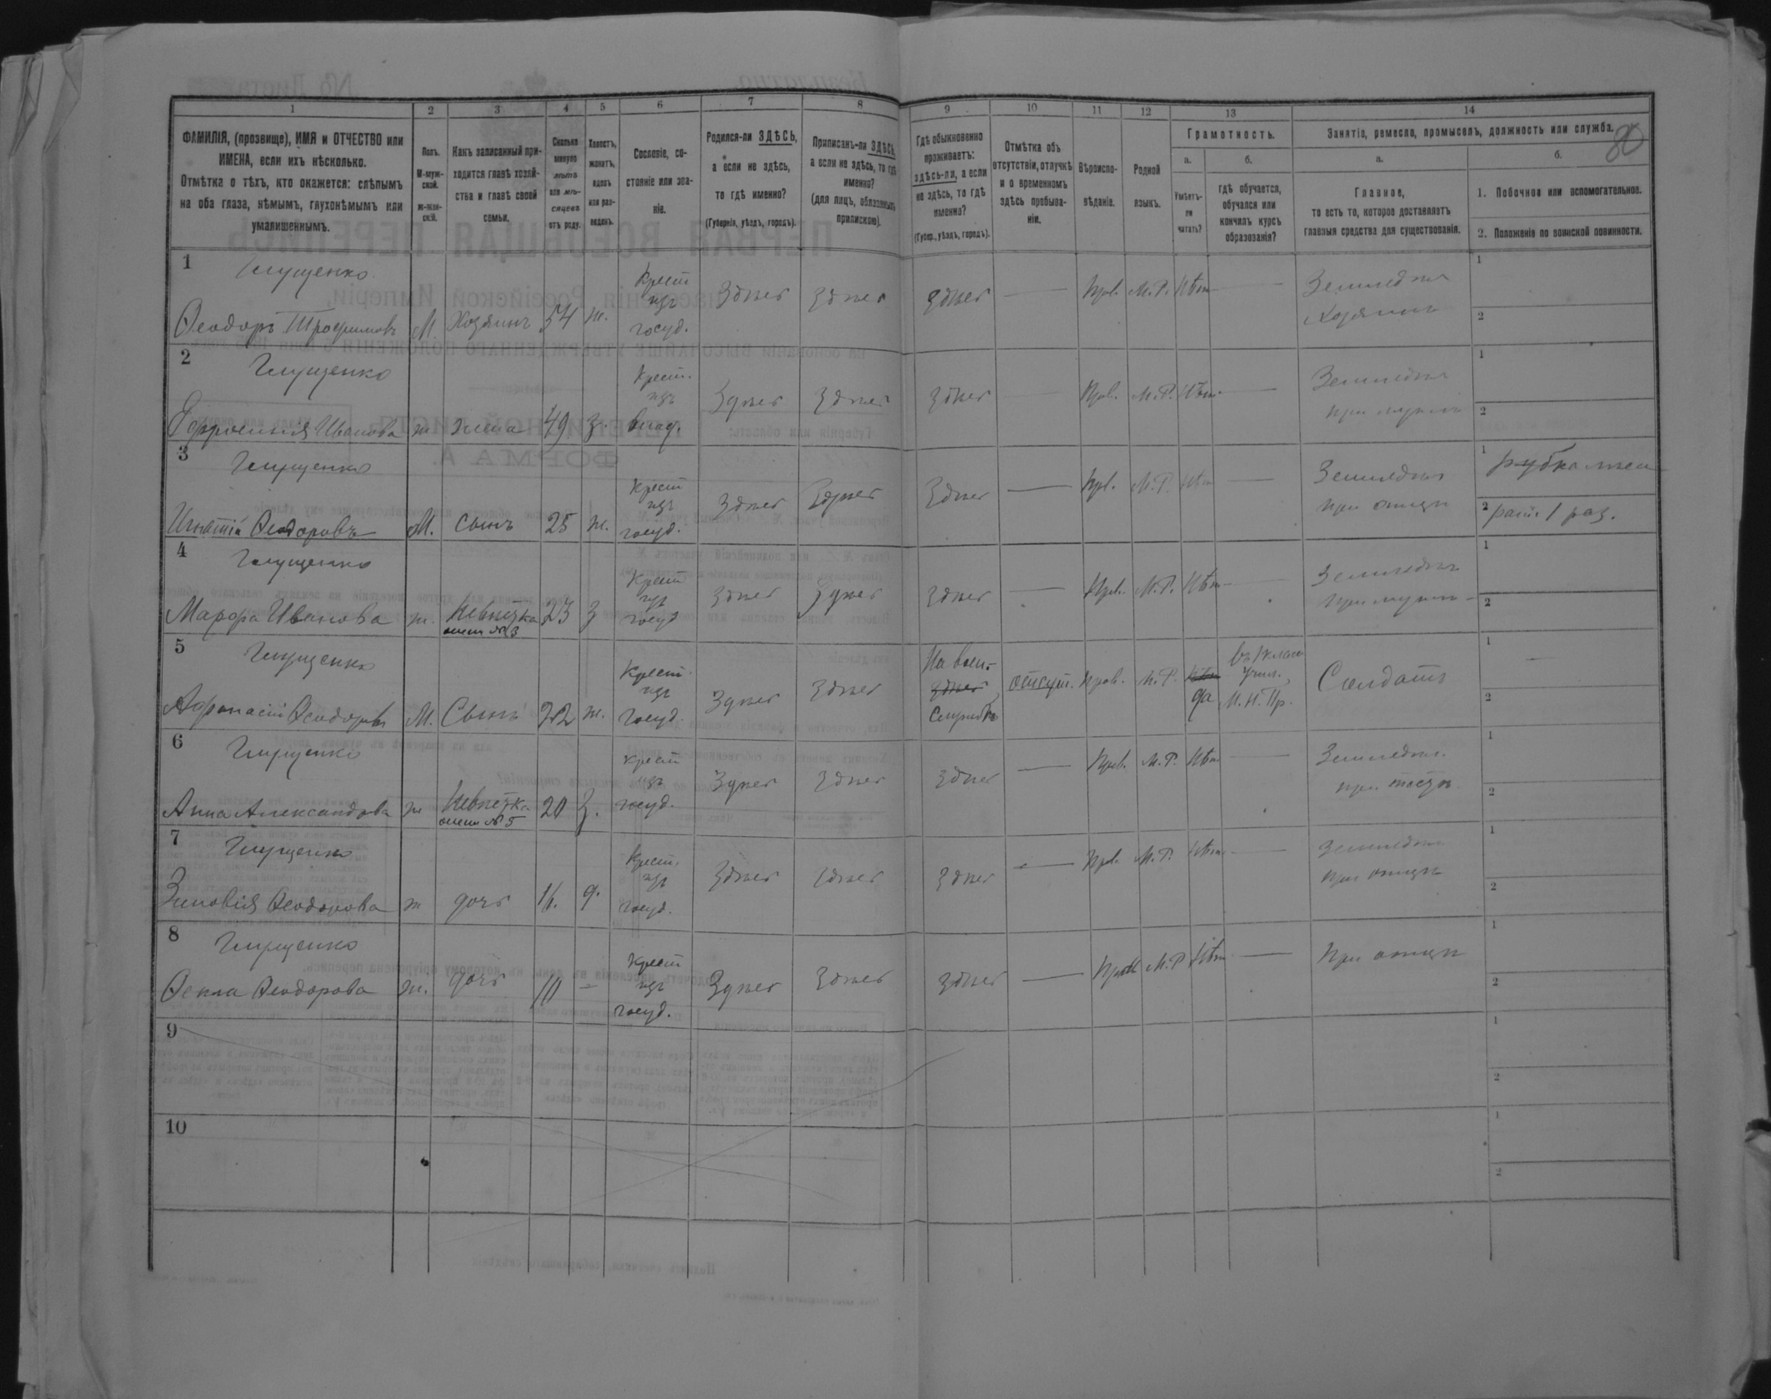 80
1 2 3 4 5 6 7 8 9 10 11 12 13 14
ФАМИЛІЯ, (прозвище), ИМЯ и ОТЧЕСТВО или ИМЕНА, если ихъ нѣсколько.
Отмѣтка о тѣхъ, кто окажется: слѣпымъ на оба глаза, нѣмымъ, глухонѣмымъ или умалишеннымъ.
Полъ.
М-муж-
ской.
ж-жен-
скій.
Какъ записанный при-
ходится главѣ хозяй-
ства и главѣ своей
семьи.
Сколько
минуло
лѣтъ
или мѣ-
сяцевъ
отъ роду.
Холостъ,
женатъ,
вдовъ
или раз-
веденъ.
Сословіе, со-
стояніе или зва-
ніе.
Родился-ли ЗДѢСЬ,
а если не здѣсь,
то гдѣ именно?
(Губернія, уѣздъ, городъ).
Приписанъ-ли ЗДѢСЬ,
а если не здѣсь, то гдѣ
именно?
(для лицъ, обязанныхъ
припискою).
Гдѣ обыкновенно
проживаетъ:
здѣсь-ли, а если
не здѣсь, то гдѣ
именно?
(Губер., уѣздъ, городъ).
Отмѣтка объ
отсутствіи, отлучкѣ
и о временномъ
здѣсь пребыва-
ніи.
Вѣроиспо-
вѣданіе.
Родной
языкъ.
Грамотность.
а.
Умѣетъ-
ли
читать?
б.
гдѣ обучается,
обучался или
кончилъ курсъ
образованія?
Занятіе, ремесло, промыселъ, должность или служба.
а.
Главное,
то есть то, которое доставляетъ
главныя средства для существованія.
б.
1. Побочное или вспомогательное.
2. Положеніе по воинской повинности.
1
Глущенко
Ѳеодоръ Трофимовъ М Хозяинъ 54 ж.
Крест
изъ
госуд.
Здѣсь Здѣсь Здѣсь — Прв. М.Р. Нѣт —
Земледѣл
Хозяинъ
1
2
2
Глущенко
Ефросинія Иванова ж жена 49 з.
Крест.
изъ
Здѣсь Здѣсь Здѣсь — Прв. М.Р. Нѣт —
Земледѣл
при мужѣ
1
2
3
Глущенко
Игнатій Ѳеодоровъ М. Сынъ 25 ж.
Крест
изъ
госуд.
Здѣсь Здѣсь Здѣсь — Прв. М.Р. Нѣт —
Земледѣл
при отцѣ
1 рубка
2 рат. 1 раз.
4
Глущенко
Марфа Иванова ж. Невѣстка 23 з
жена №3
Крест
изъ
госуд
Здѣсь Здѣсь Здѣсь — Прв. М.Р. Нѣт —
Земледѣл
при мужѣ
1
2
5
Глущенко
Аѳанасій Ѳеодоровъ М. Сынъ 22 ж.
Крест.
изъ
госуд.
Здѣсь Здѣсь
На воен.
здѣсь
службѣ
отсут. Прав. М.Р.
Нѣт
да
въ 1 клас
учил.
М. Н. Пр.
Солдатъ
1 —
2
6
Глущенко
Анна Александрова ж Невѣстка 20 з.
жена №5
Крест
изъ
госуд.
Здѣсь Здѣсь Здѣсь — Прв. М.Р. Нѣт —
Земледѣл.
при
1
2
7
Глущенко
Зиновія Ѳеодорова ж дочь 16. д.
Крест.
изъ
госуд.
Здѣсь Здѣсь Здѣсь — Прв. М.Р. Нѣт —
Земледѣл
при отцѣ
1
2
8
Глущенко
Ѳекла Ѳеодорова ж. дочь 10 —
Крест
изъ
госуд.
Здѣсь Здѣсь Здѣсь — Прав М.Р Нѣт —
При отцѣ
1
2
9
1
2
10
1
2